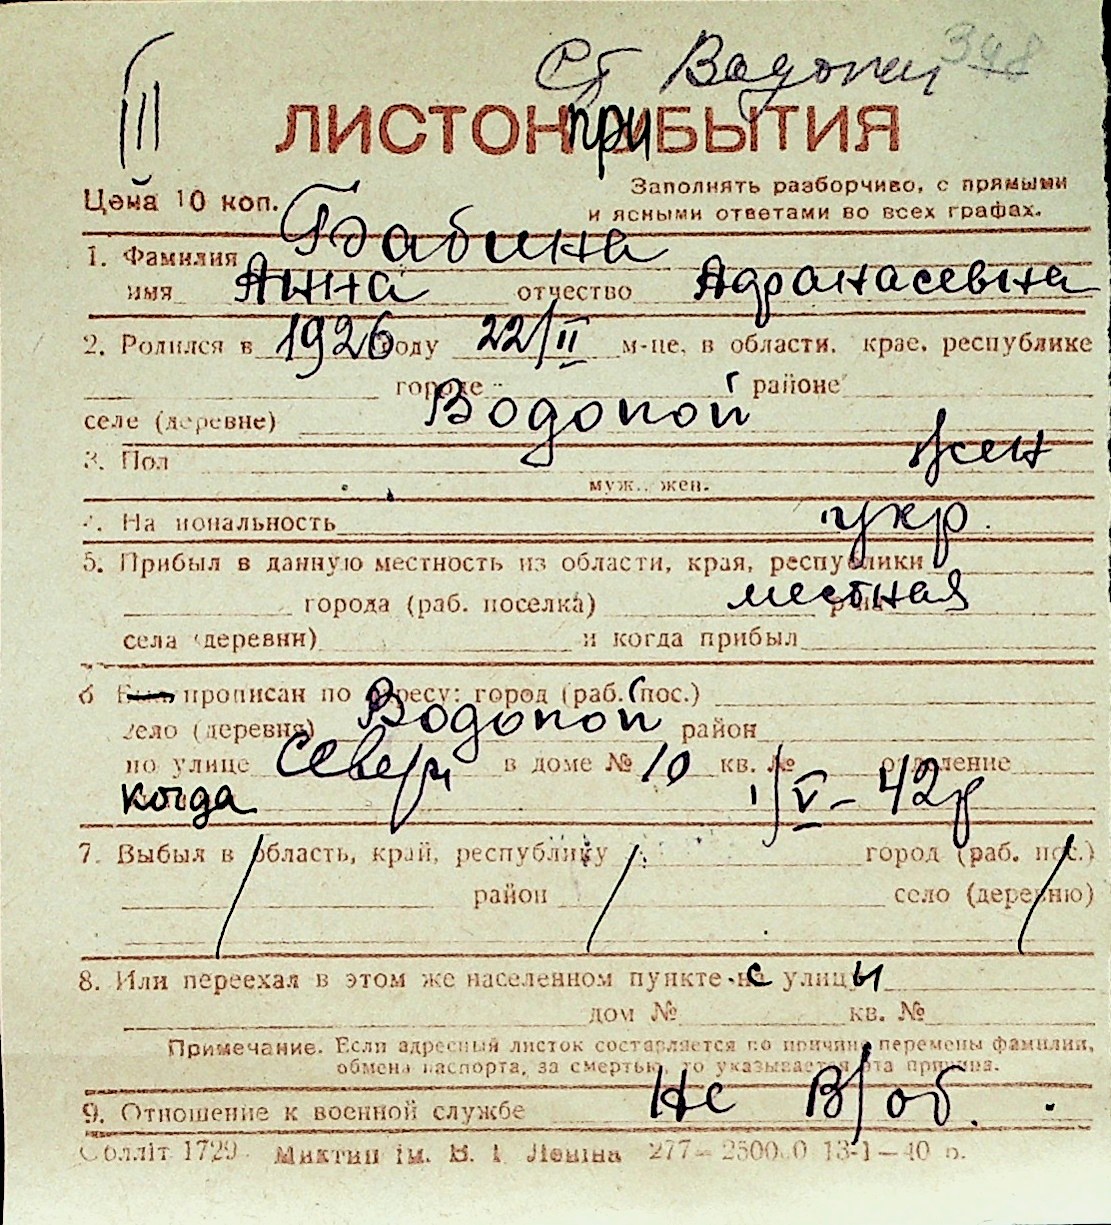 Ст Водопой 348
III
ЛИСТОК ПРИБЫТИЯ
Цена 10 коп.
Заполнять разборчиво, с прямыми
и ясными ответами во всех графах.
1. Фамилия Бабина
имя Анна отчество Афанасевна
2. Родился в 1926 году 22/II м-це, в области, крае, республике
городе районе
селе (деревне) Водопой
3. Пол жен
муж., жен.
4. Национальность укр.
5. Прибыл в данную местность из области, края, республики
города (раб. поселка) местная
села (деревни) и когда прибыл
6 прописан по адресу: город (раб. пос.)
село (деревня) Водопой район
по улице Северн в доме № 10 кв. № отделение
когда 1/V-42г
7. Выбыл в область, край, республику город (раб. пос.)
район село (деревню)
8. Или переехал в этом же населенном пункте с улицы
дом № кв. №
Примечание. Если адресный листок составляется по причине перемены фамилии,
обмена паспорта, за смертью, то указывается эта причина.
9. Отношение к военной службе не в/об.
Облліт 1729 Миктип ім. В. І. Леніна 277— 13-1—40 р.